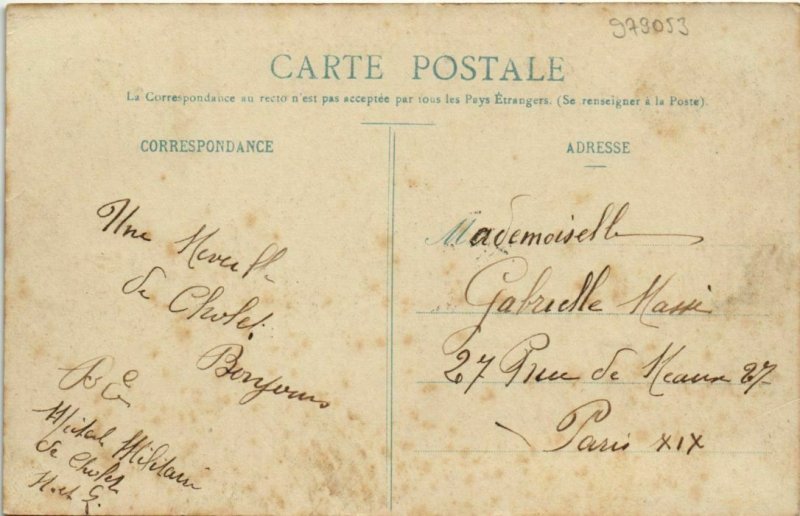 979053
CARTE POSTALE
La Correspondance au recto n'est pas acceptée par tous les Pays Étrangers. (Se renseigner à la Poste).
CORRESPONDANCE
Une
de Cholet.
Bonjour
Militaire
de Cholet
ADRESSE
Mademoiselle
Gabrielle Massé
27 Rue de Meaux 27
Paris XIX